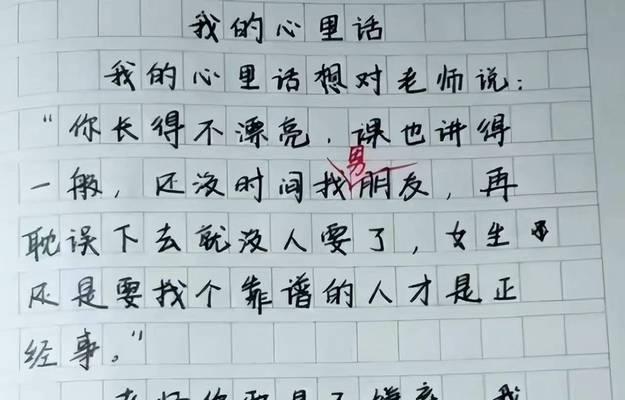 我的心里话
我的心里话想对老师说:
“你长得不漂亮,课也讲得
男
一般,还没时间找朋友,再
耽误下去就没人要了,女生
还是要找个靠谱的人才是正
经事。”